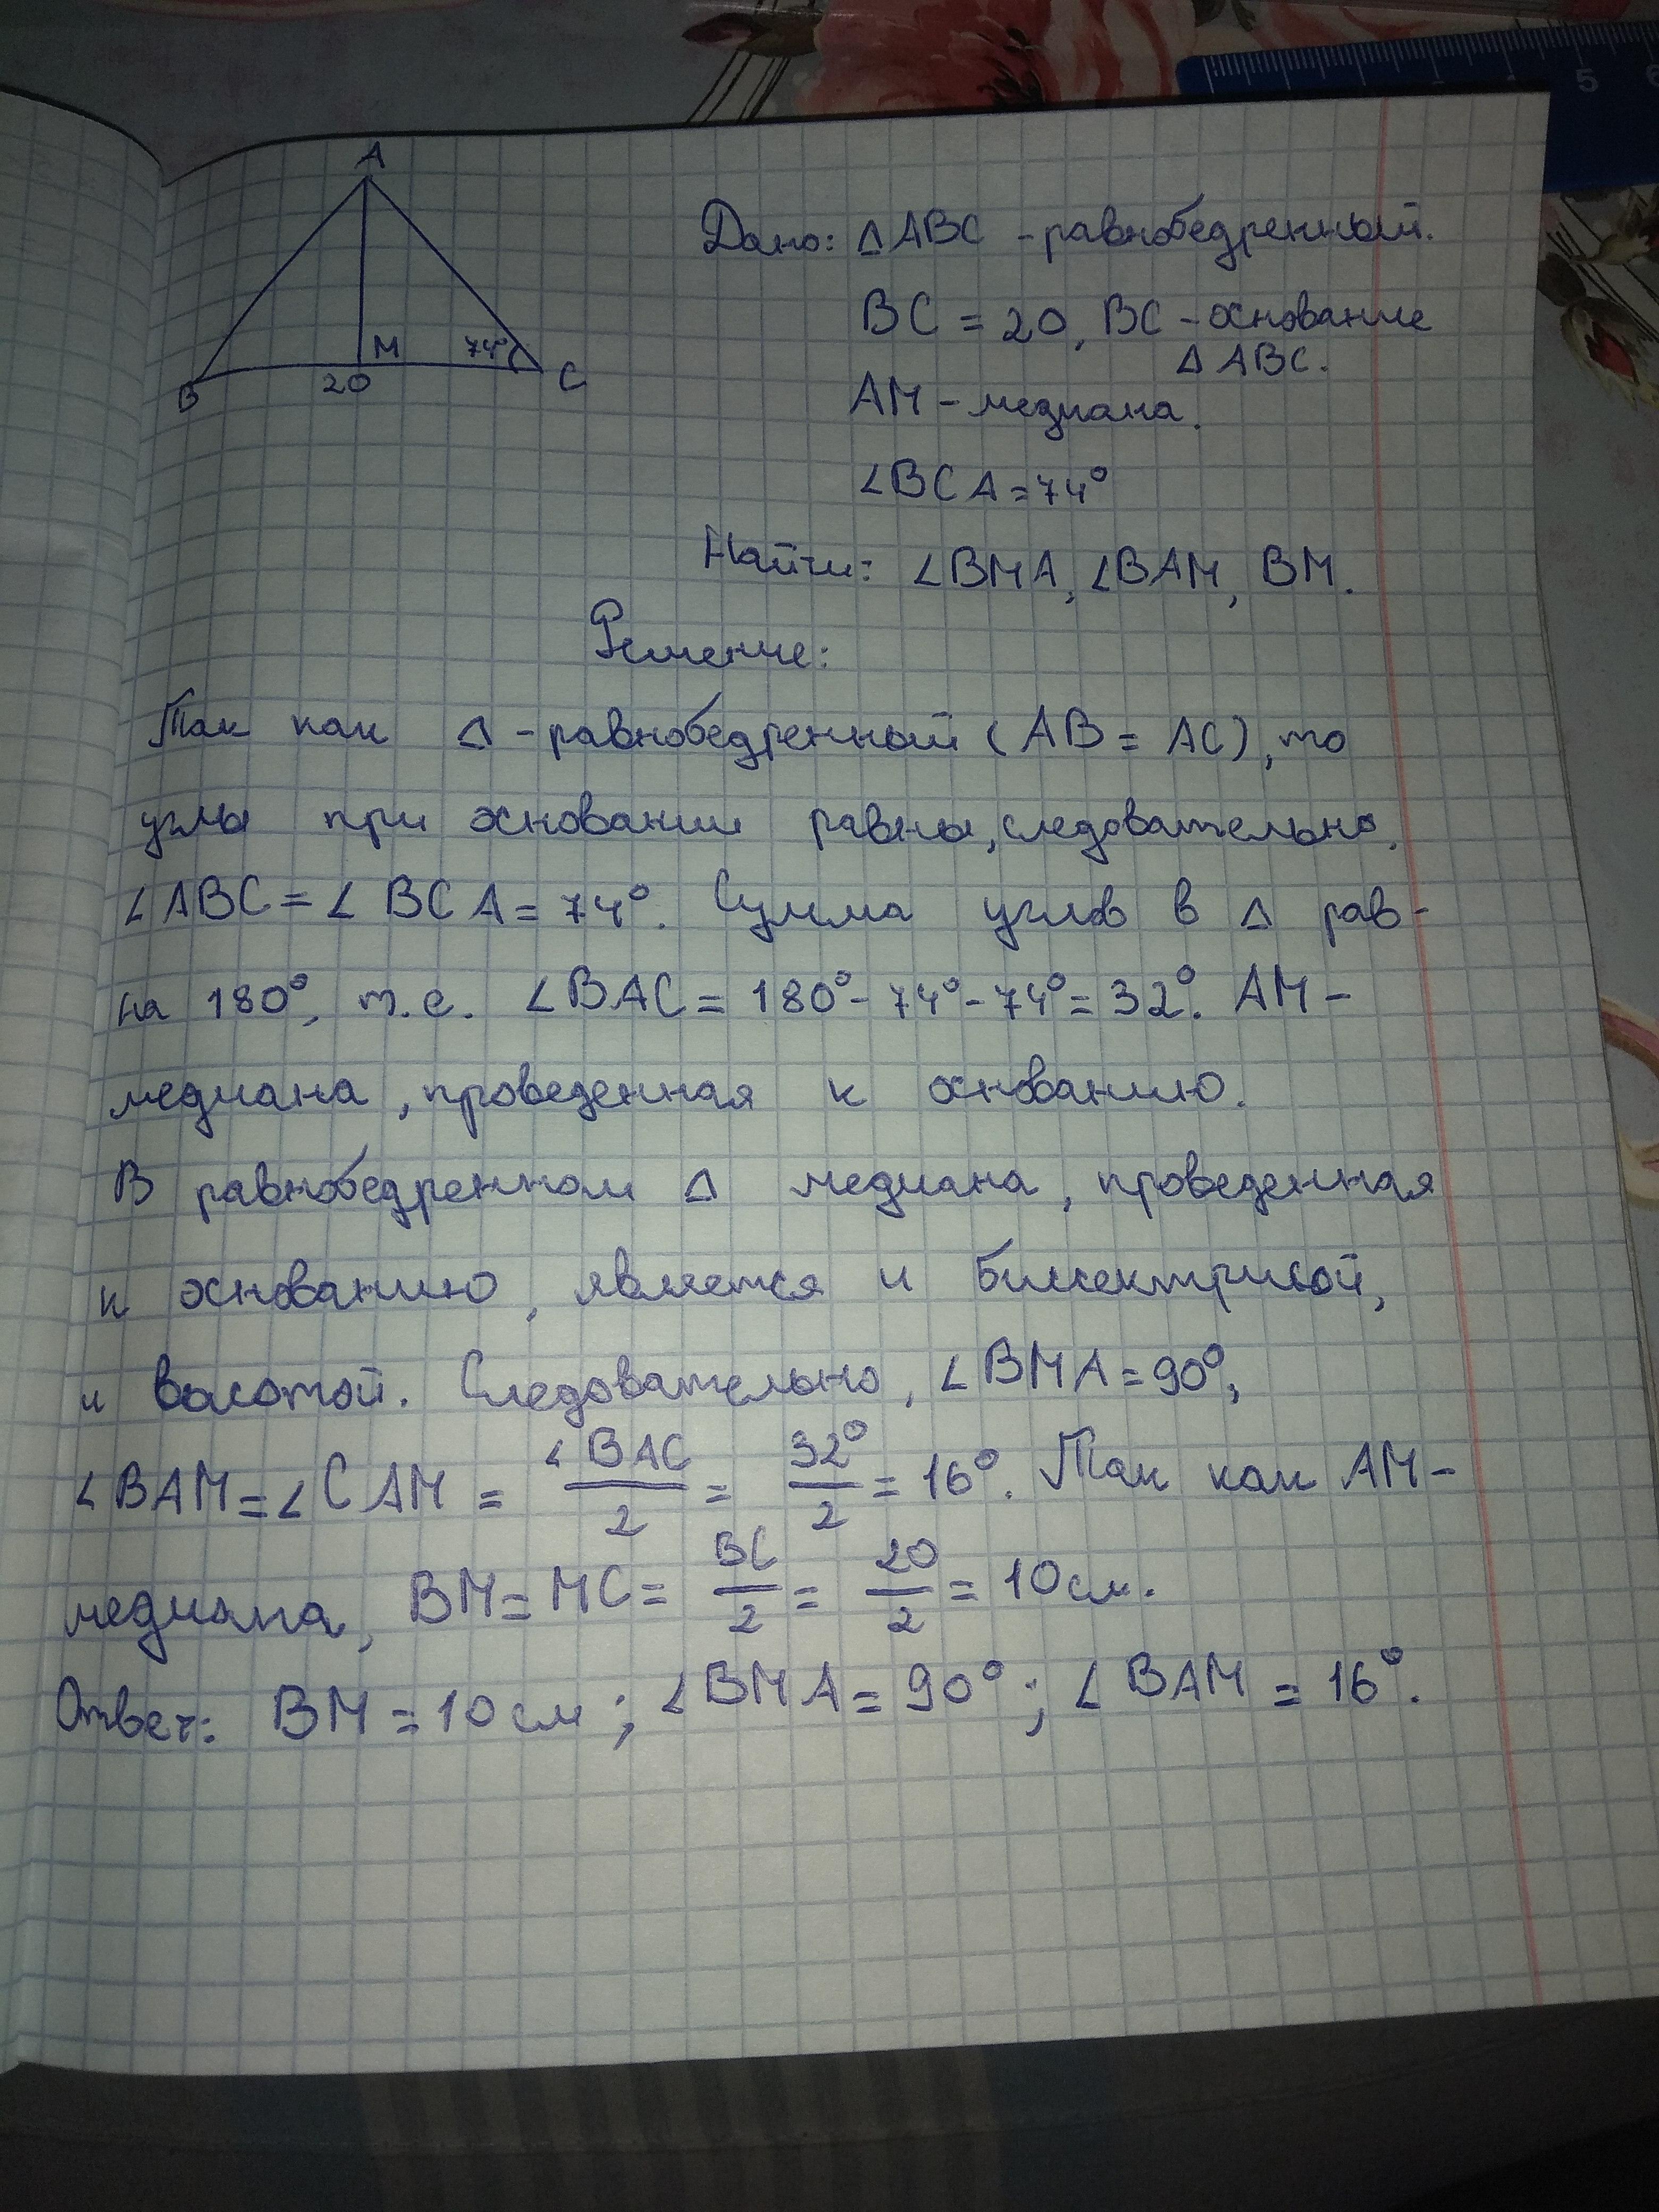 A
B
M
74°
C
20
Дано: △ABC - равнобедренный.
BC = 20, BC - основание
△ABC.
AM - медиана.
∠BCA = 74°
Найти: ∠BMA, ∠BAM, BM.
Решение:
Так как △ - равнобедренный (AB = AC), то
углы при основании равны, следовательно,
∠ABC = ∠BCA = 74°. Сумма углов в △ рав-
на 180°, т.е. ∠BAC = 180° - 74° - 74° = 32°. AM -
медиана, проведенная к основанию.
В равнобедренном △ медиана, проведенная
к основанию, является и биссектрисой,
и высотой. Следовательно, ∠BMA = 90°,
∠BAM = ∠CAM = ∠BAC/2 = 32°/2 = 16°. Так как AM -
медиана, BM = MC = BC/2 = 20/2 = 10 см.
Ответ: BM = 10 см; ∠BMA = 90°; ∠BAM = 16°.
5
6